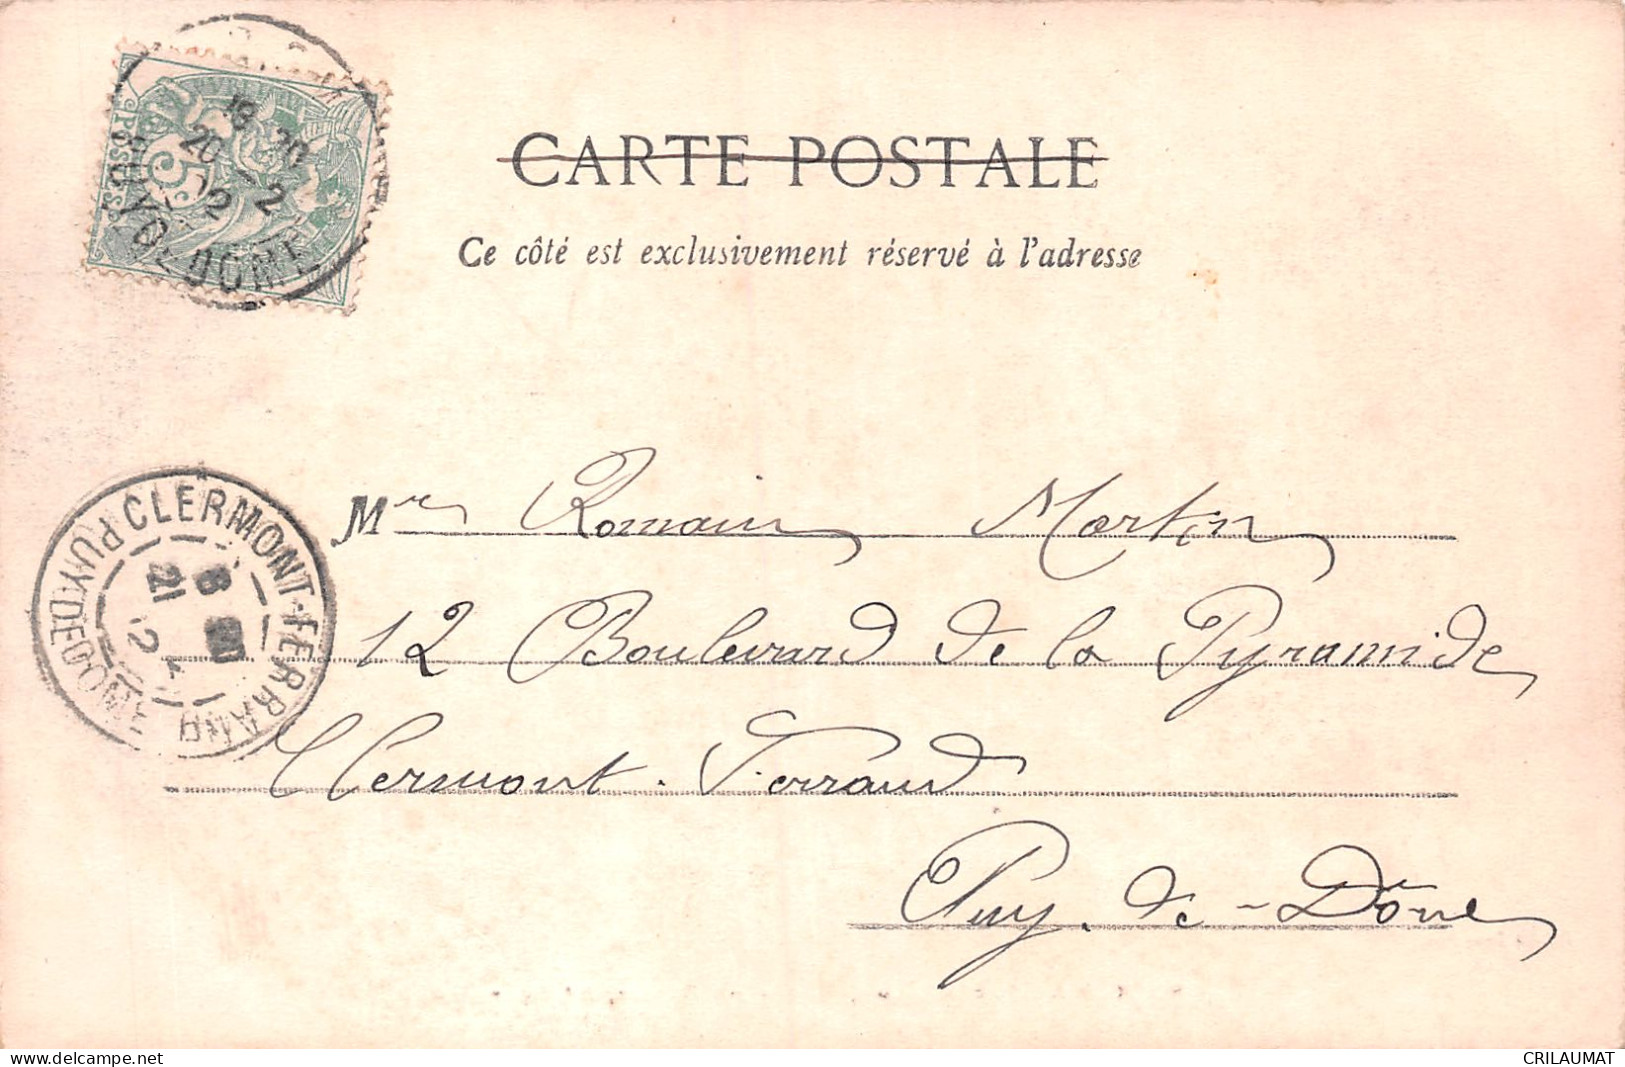 18 20
20 -2
02
5c
POSTES
PUY DE DOME
CARTE POSTALE
Ce côté est exclusivement réservé à l'adresse
CLERMONT-FERRAND
PUY DE DOME
8
21
Mr Romain Martin
12 Boulevard de la Pyramide
Clermont-Ferrand
Puy-de-Dôme
CRILAUMAT